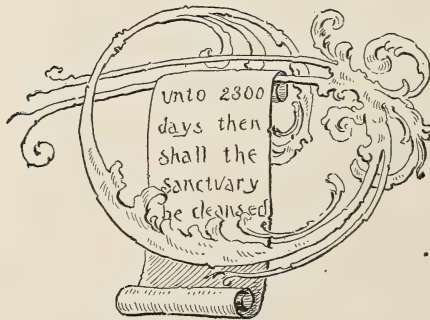 unto 2300
days then
shall the
sanctuary
be cleansed